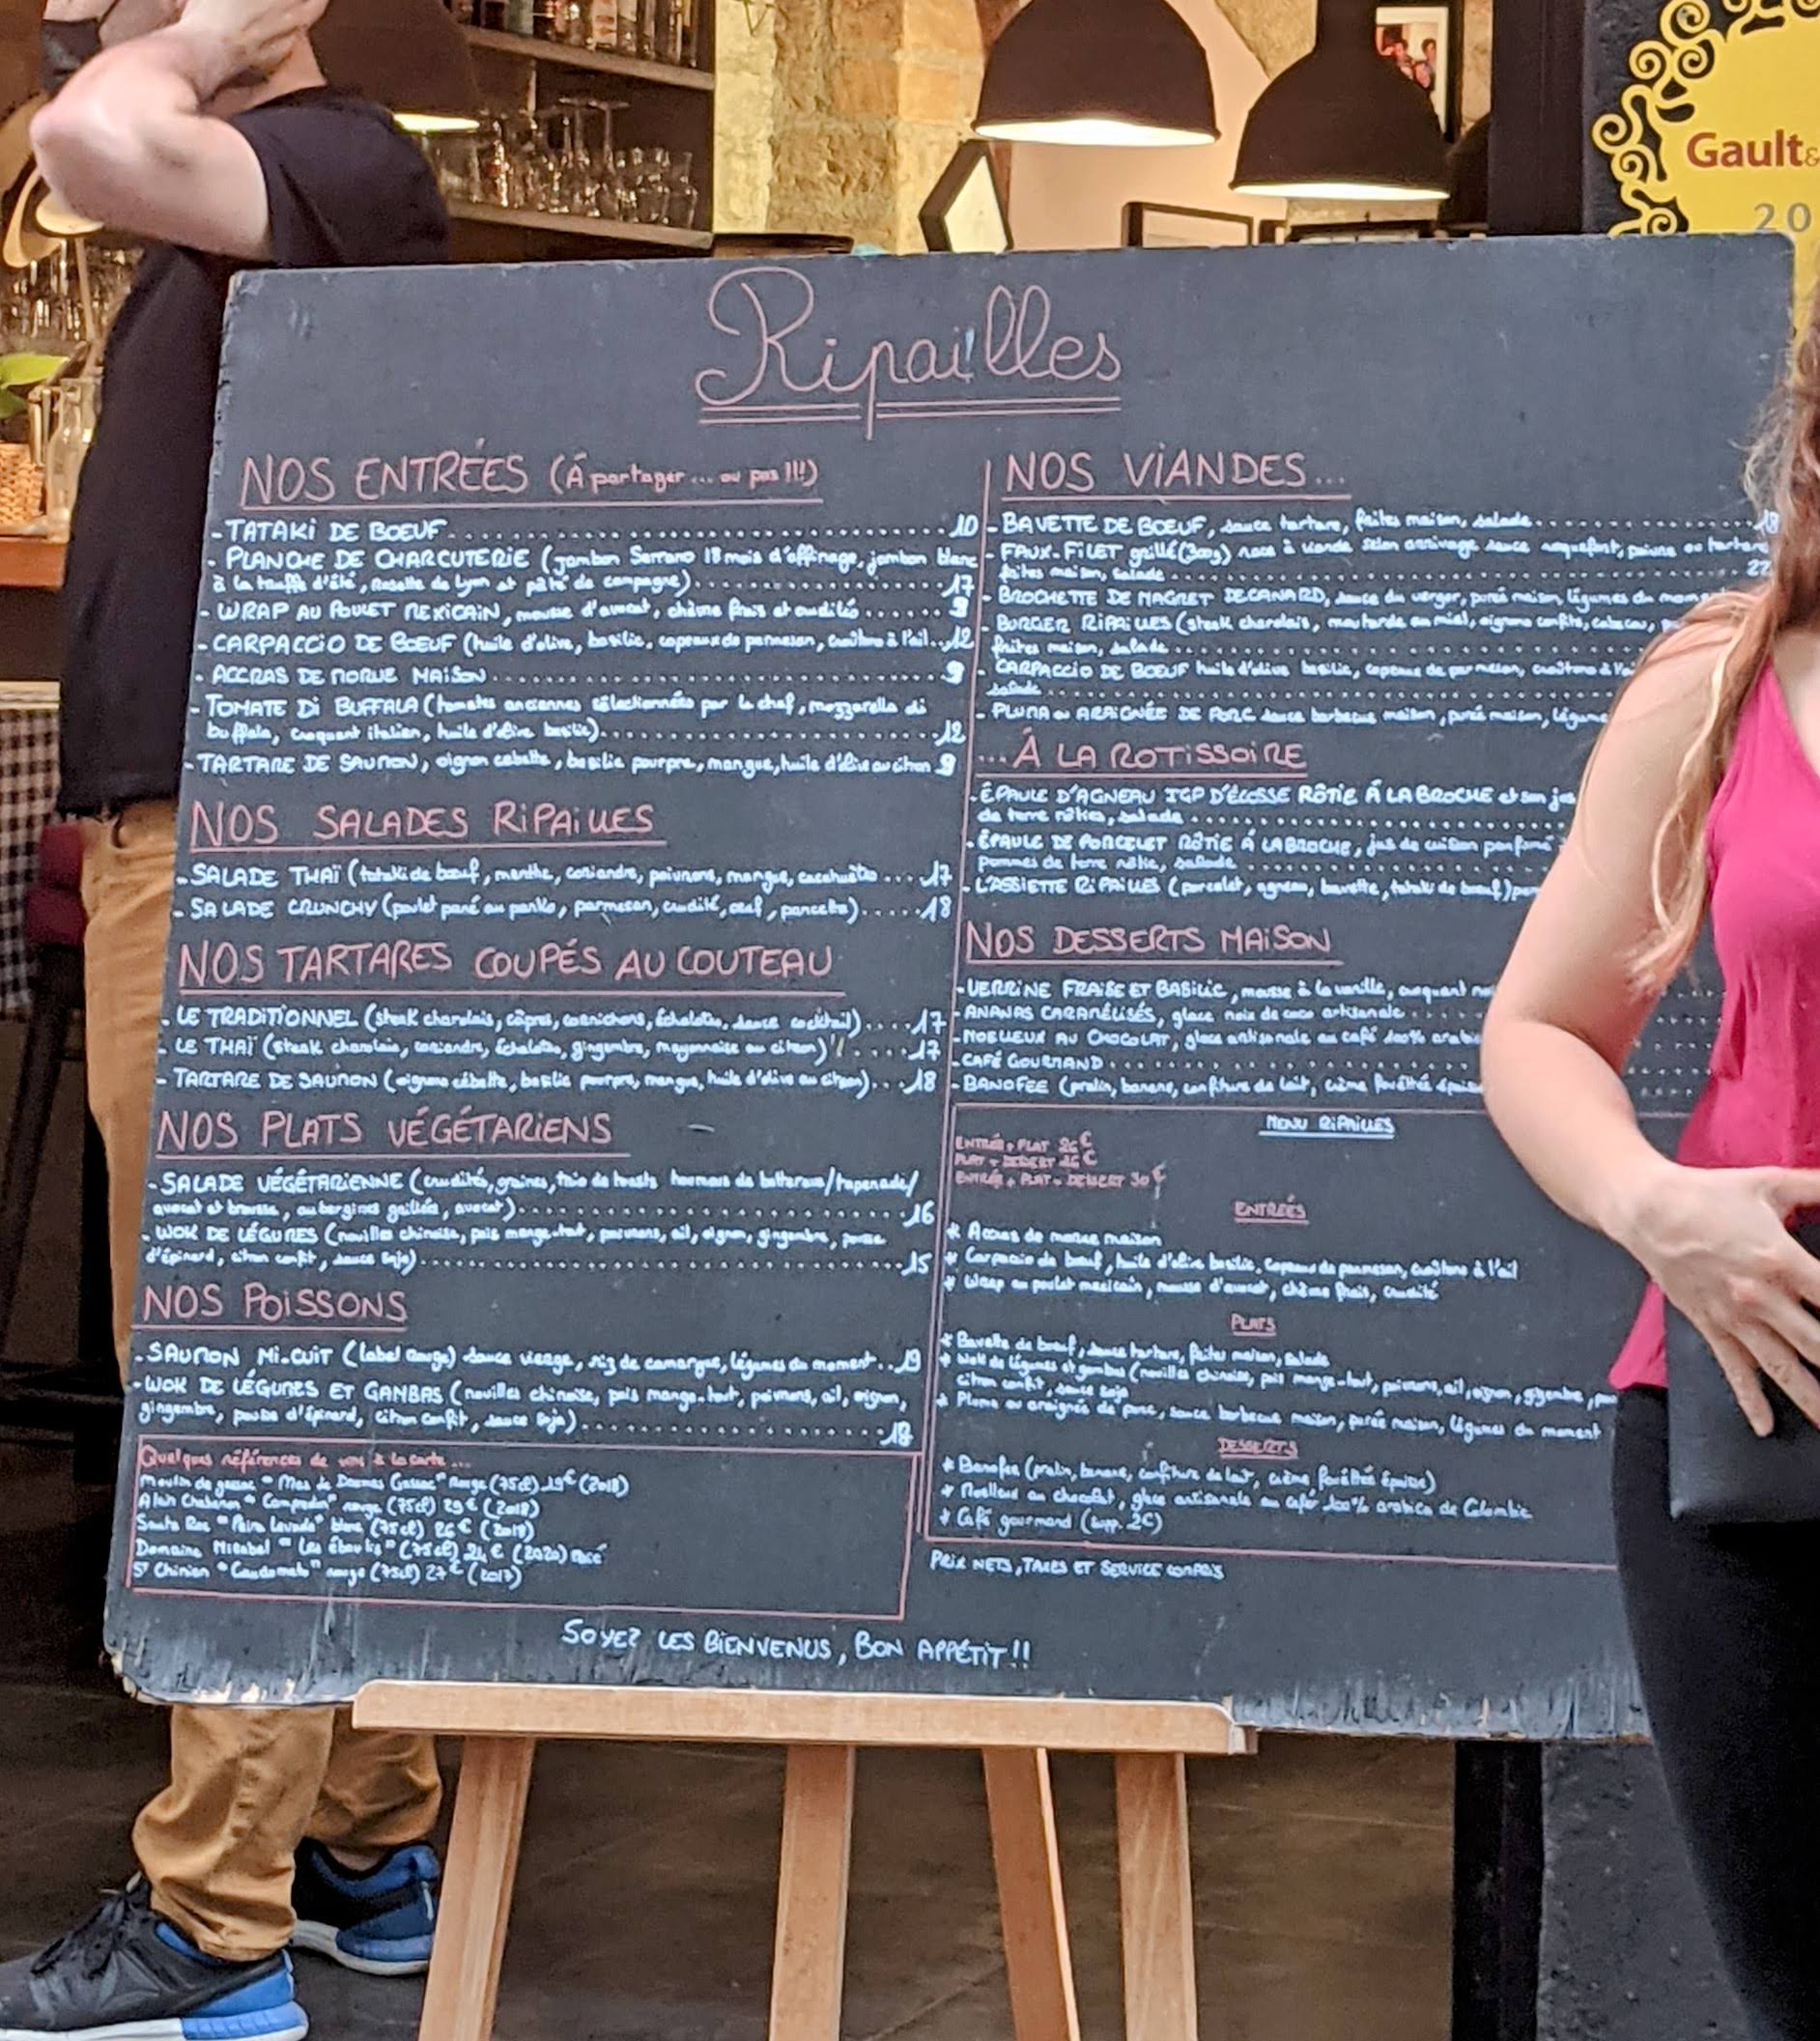 Gault&
20
Ripailles
NOS ENTRÉES (À partager... ou pas !!!)
- TATAKI DE BOEUF.......10
- PLANCHE DE CHARCUTERIE (jambon Serrano 18 mois d'affinage, jambon blanc
à la truffe d'été, Rosette de Lyon et pâté de campagne).......17
- WRAP AU POULET MEXICAIN, mousse d'avocat, chèvre frais et crudités......9
- CARPACCIO DE BOEUF (huile d'olive, basilic, copeaux de parmesan, croûtons à l'ail...12
- ACCRAS DE MORUE MAISON.......9
- TOMATE DI BUFFALA (tomates anciennes sélectionnées par le chef, mozzarella di
buffala, croquant italien, huile d'olive basilic).......12
- TARTARE DE SAUMON, oignon cebette, basilic pourpre, mangue, huile d'olive au citron 9
NOS SALADES RIPAILLES
- SALADE THAÏ (tataki de bœuf, menthe, coriandre, poivrons, mangue, cacahuètes....17
- SALADE CRUNCHY (poulet pané au panko, parmesan, crudité, œuf, pancetta).....18
NOS TARTARES COUPÉS AU COUTEAU
- LE TRADITIONNEL (steak charolais, câpres, cornichons, échalotes, sauce cocktail)....17
- LE THAÏ (steak charolais, coriandre, échalotes, gingembre, mayonnaise au citron)....17
- TARTARE DE SAUMON (oignons cébette, basilic pourpre, mangue, huile d'olive au citron)...18
NOS PLATS VÉGÉTARIENS
- SALADE VÉGÉTARIENNE (crudités, graines, trio de toasts houmous de betterave/tapenade/
avocat et brousse, aubergines grillées, avocat).......16
- WOK DE LÉGUMES (nouilles chinoise, pois mange-tout, poivrons, ail, oignon, gingembre, pousse
d'épinard, citron confit, sauce soja).......15
NOS POISSONS
- SAUMON MI-CUIT (label rouge) sauce vierge, riz de camargue, légumes du moment..19
- WOK DE LÉGUMES ET GAMBAS (nouilles chinoise, pois mange-tout, poivrons, ail, oignon,
gingembre, pousse d'épinard, citron confit, sauce soja).......18
Quelques références de vins à la carte...
Moulin de gassac "Mas de Daumas Gassac" rouge (75cl) 19€ (2018)
Alain Chabanon "Campredon" rouge (75cl) 29€ (2018)
blanc (75cl) 26€
Domaine Mirabel "Les éboulis" (75cl) 24€ (2020) rosé
St Chinian rouge (75cl) 27€ (2017)
NOS VIANDES...
- BAVETTE DE BOEUF, sauce tartare, frites maison, salade.......18
- FAUX-FILET grillé (300g) race à viande selon arrivage sauce roquefort, poivre ou tartare
frites maison, salade.......22
- BROCHETTE DE MAGRET DE CANARD, sauce du verger, purée maison, légumes du mom
- BURGER RIPAILLES (steak charolais, moutarde au miel, oignons confits,
frites maison, salade.......
- CARPACCIO DE BOEUF huile d'olive basilic, copeaux de parmesan, croûtons à l'ai
salade.......
- PLUMA ou ARAIGNÉE DE PORC sauce barbecue maison, purée maison, légume
...À LA ROTISSOIRE
- ÉPAULE D'AGNEAU IGP D'ÉCOSSE RÔTIE À LA BROCHE et son jus
de terre rôties, salade.......
- ÉPAULE DE PORCELET RÔTIE À LA BROCHE, jus de cuisson parfumé
pommes de terre rôtie, salade.......
- L'ASSIETTE RIPAILLES (porcelet, agneau, bavette, tataki de bœuf)
NOS DESSERTS MAISON
- VERRINE FRAISE ET BASILIC, mousse à la vanille, croquant
- ANANAS CARAMÉLISÉS, glace noix de coco artisanale.....
- MOELLEUX AU CHOCOLAT, glace artisanale au café 100% arabi
- CAFÉ GOURMAND.......
- BANOFEE (pralin, banane, confiture de lait, crème fouettée épaiss
MENU RIPAILLES
ENTRÉE + PLAT 26€
PLAT + DESSERT 26€
ENTRÉE + PLAT + DESSERT 30€
ENTRÉES
* Accras de morue maison
* Carpaccio de bœuf, huile d'olive basilic, copeaux de parmesan, croûtons à l'ail
* Wrap au poulet mexicain, mousse d'avocat, chèvre frais, crudité
PLATS
* Bavette de bœuf, sauce tartare, frites maison, salade
* Wok de légumes et gambas (nouilles chinoise, pois mange-tout, poivrons, ail, oignon, gigembre, pou
citron confit, sauce soja
* Pluma ou araignée de porc, sauce barbecue maison, purée maison, légumes du moment
DESSERTS
* Banofee (pralin, banane, confiture de lait, crème fouettée épaisse)
* Moelleux au chocolat, glace artisanale au café 100% arabica de Colombie
* Café gourmand (supp. 2€)
PRIX NETS, TAXES ET SERVICE COMPRIS
SOYEZ LES BIENVENUS, BON APPÉTIT!!